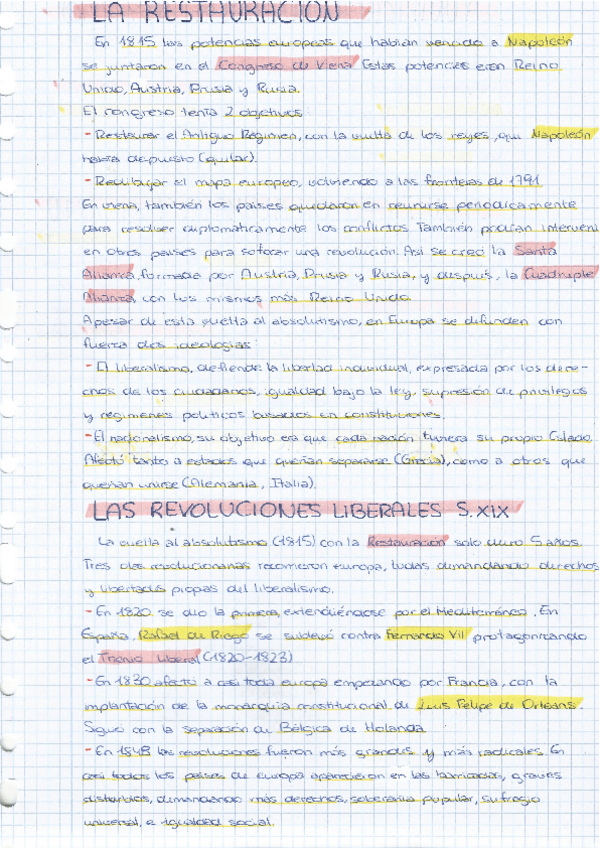 LA RESTAURACIÓN
En 1815 las potencias europeas que habían vencido a Napoleón
se juntaron en el Congreso de Viena. Estas potencias eran Reino
Unido, Austria, Prusia y Rusia.
El congreso tenía 2 objetivos:
- Restaurar el Antiguo Régimen, con la vuelta de los reyes, que Napoleón
había depuesto (quitar).
- Redibujar el mapa europeo, volviendo a las fronteras de 1791
En viena, también los países quedaron en reunirse periodicamente
para resolver diplomaticamente los conflictos. También podían interveni
en otros países para sofocar una revolución. Así se creó la Santa
Alianza, formada por Austria, Prusia y Rusia, y después, la Cuádruple
Alianza, con los mismos más Reino Unido.
Apesar de esta vuelta al absolutismo, en Europa se difunden con
fuerza dos ideologías:
- El liberalismo, defiende la libertad individual, expresada por los dere-
chos de los ciudadanos, igualdad bajo la ley, supresión de privilegios
y regímenes políticos basados en constituciones.
- El nacionalismo, su objetivo era que cada nación tuviera su propio Estado.
Afectó tanto a estados que querían separarse (Grecia), como a otros que
querían unirse (Alemania, Italia).
LAS REVOLUCIONES LIBERALES S.XIX
La vuelta al absolutismo (1815) con la Restauración solo duró 5 años.
Tres olas revolucionarias recorrieron europa, todas demandando derechos
y libertades propias del liberalismo.
- En 1820 se dio la primera, extendiéndose por el Mediterráneo. En
España, Rafael de Riego se sublevó contra Fernando VII protagonizando
el Trienio Liberal (1820-1823)
- En 1830 afectó a casi toda europa empezando por Francia, con la
implantación de la monarquía constitucional de Luis Felipe de Orleans.
Siguió con la separación de Bélgica de Holanda
- En 1848 las revoluciones fueron más grandes y más radicales. En
casi todos los países de europa aparecieron en las barricadas, graves
disturbios, demandando más derechos, soberanía popular, sufragio
universal, e igualdad social.